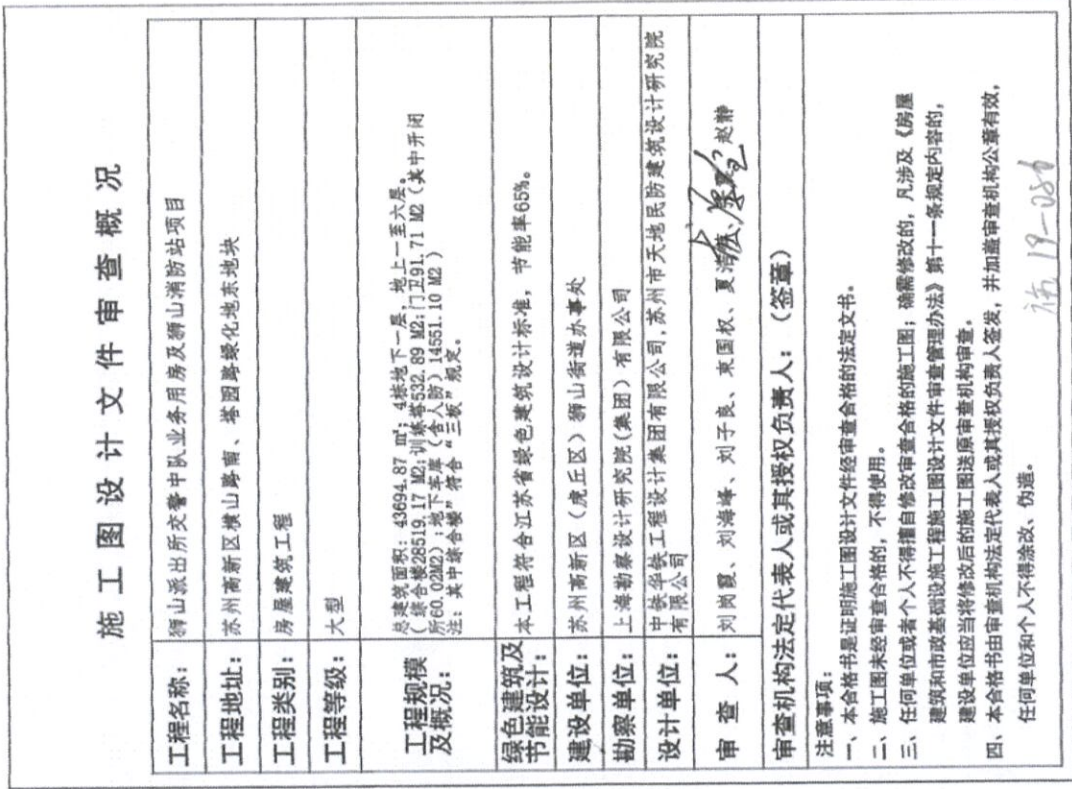 施工图设计文件审查概况
工程名称： 狮山派出所交警中队业务用房及狮山消防站项目
工程地址： 苏州高新区横山路南、塔园路绿化地东地块
工程类别： 房屋建筑工程
工程等级： 大型
工程规模
及概况：
总建筑面积：43694.87 ㎡；4栋地下一层，地上一至六层。
（综合楼28519.17 M2；训练塔532.89 M2；门卫91.71 M2（其中开闭
所60.02M2）；地下车库（含人防）14551.10 M2 ）
注：其中综合楼“符合“三板”规定。
绿色建筑及
节能设计：
本工程符合江苏省绿色建筑设计标准，节能率65%。
建设单位： 苏州高新区（虎丘区）狮山街道办事处
勘察单位： 上海勘察设计研究院(集团）有限公司
设计单位：
中铁华铁工程设计集团有限公司,苏州市天地民防建筑设计研究院
有限公司
审 查 人： 刘岗霞、刘海峰、刘子良、束国权、夏 赵静
审查机构法定代表人或其授权负责人：（签章）
注意事项：
一、本合格书是证明施工图设计文件经审查合格的法定文书。
二、施工图未经审查合格的，不得使用。
三、任何单位或者个人不得擅自修改审查合格的施工图；确需修改的，凡涉及《房屋
建筑和市政基础设施工程施工图设计文件审查管理办法》第十一条规定内容的，
建设单位应当将修改后的施工图送原审查机构审查。
四、本合格书由审查机构法定代表人或其授权负责人签发，并加盖审查机构公章有效，
任何单位和个人不得涂改、伪造。